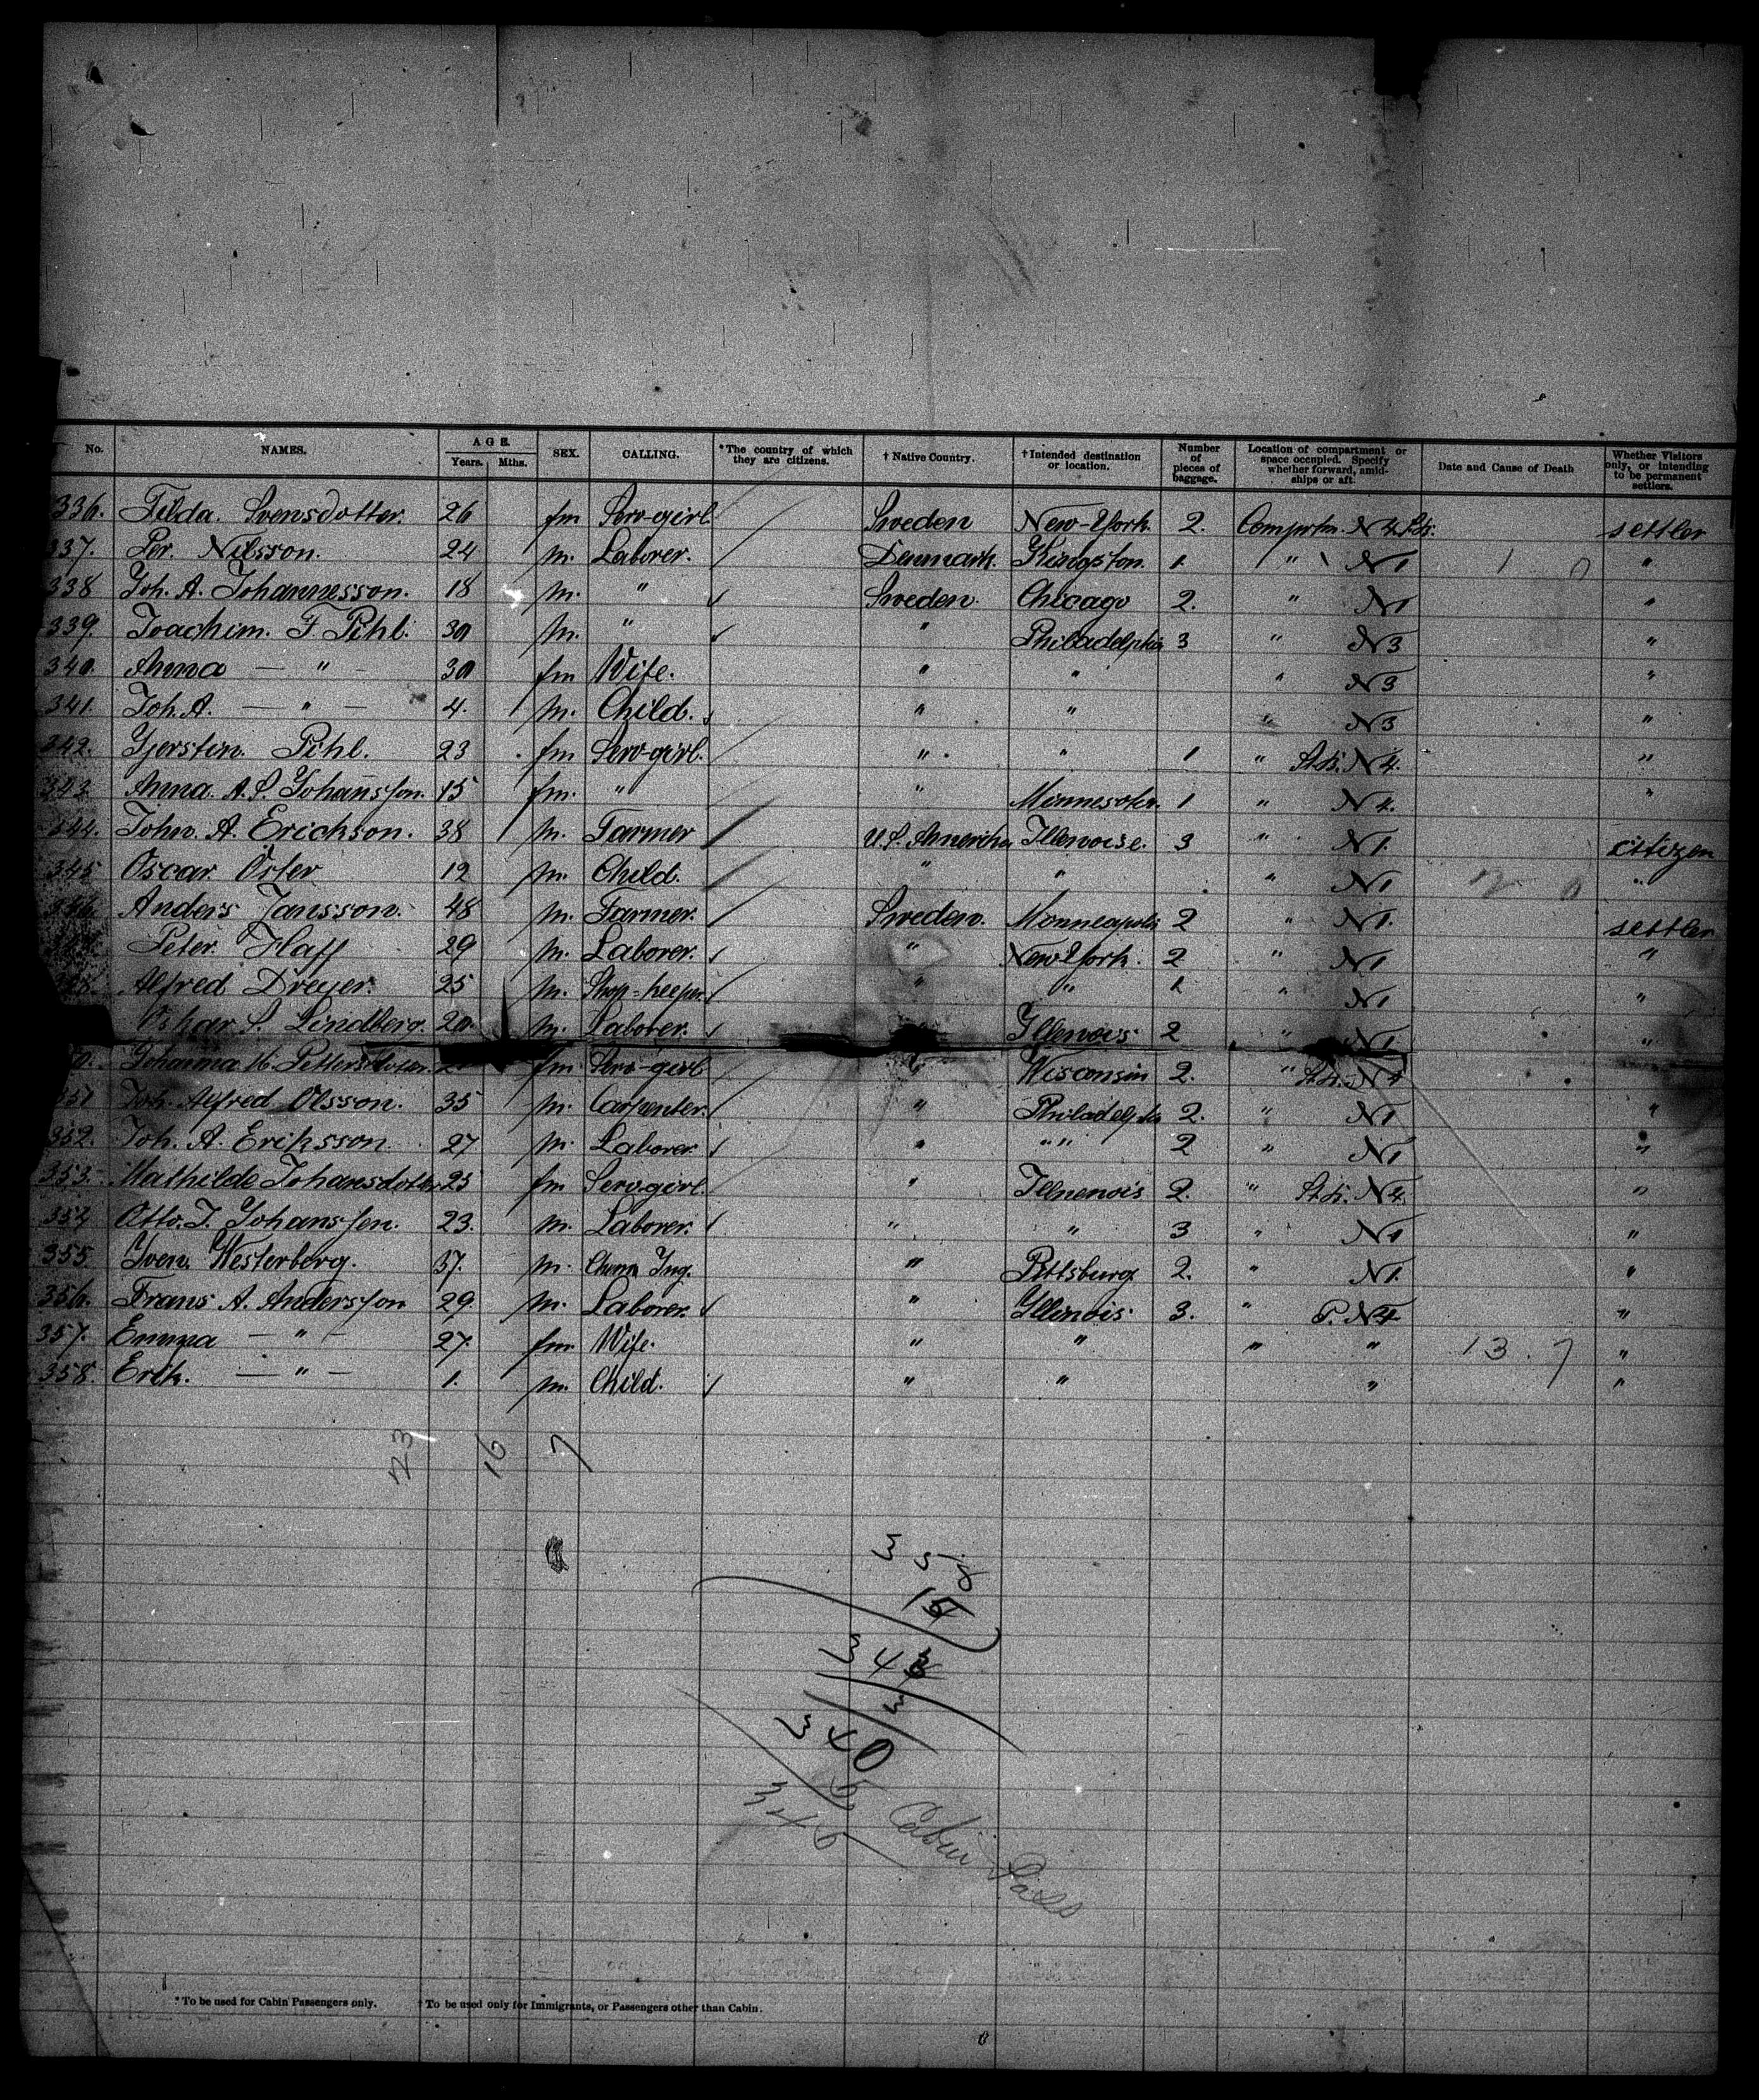 No. NAMES. AGE. Years. Mths. SEX. CALLING. *The country of which they are citizens. † Native Country. † Intended destination or location. Number of pieces of baggage. Location of compartment or space occupied. Specify whether forward, amidships or aft. Date and Cause of Death Whether Visitors only, or intending to be permanent settlers.
336. Tilda. Svensdotter. 26 fm Serv-girl Sweden New-York. 2. Compartm. N 4 settler
337. Per. Nilsson. 24 m. Laborer. Denmark. Kingston. 1. " N1 1 0 "
338 Joh. A. Johannesson. 18 m. " Sweden. Chicago 2. " N1 "
339. Joachim. F. Pihl. 30 m. " " Philadelphia 3 " N3 "
340. Anna — " — 30 fm Wife. " " " N3 "
341. Joh. A. — " — 4. m. Child. " " " N3 "
342. Gjerstin. Pihl. 23 fm Serv-girl. " " 1 " N4. "
343. Anna. A. S. Johansson. 15 fm. " " Minnesota. 1 " N4. "
344. John. A. Erickson. 38 m. Farmer U. S. America Illenoise. 3 " N1. citizen
345 Oscar Öster 12 m. Child. " " " N1 2 0 "
346. Anders Jansson. 48 m. Farmer. Sweden. Monneapolis 2 " N1. settler
Peter. Haff 29 m. Laborer. " New York. 2 " N1 "
Alfred Dreyer. 25 m. Shop-keeper. " " 1. " N1 "
Oskar S. Lindberg. 20. m. Laborer. Illenois 2 " N1 "
Johanna M. Pettersdotter. fm Serv-girl " Wisconsin 2. " N4
351 Joh. Alfred Olsson. 35 m. Carpenter. " Philadelphia 2. " N1 "
352. Joh. A. Eriksson. 27 m. Laborer. " " " 2 " N1 "
353. Mathilda Johansdotter 25 fm Serv-girl. " Illenenois 2. " N4. "
352 Otto. J. Johansson. 23. m. Laborer. " " 3 " N1 "
355 Sven. Westerberg. 37. m. Chem Ing. " Pittsburg 2. " N1. "
356. Frans A. Andersson 29. m. Laborer. " Illinois. 3. " P. N4 "
357. Emma — " — 27. fm. Wife. " " " " 13. 7 "
358. Erik. — " — 1. m. Child. " " " "
23 16 7
340
6 Cabin Pass
346
*To be used for Cabin Passengers only. † To be used only for Immigrants, or Passengers other than Cabin.